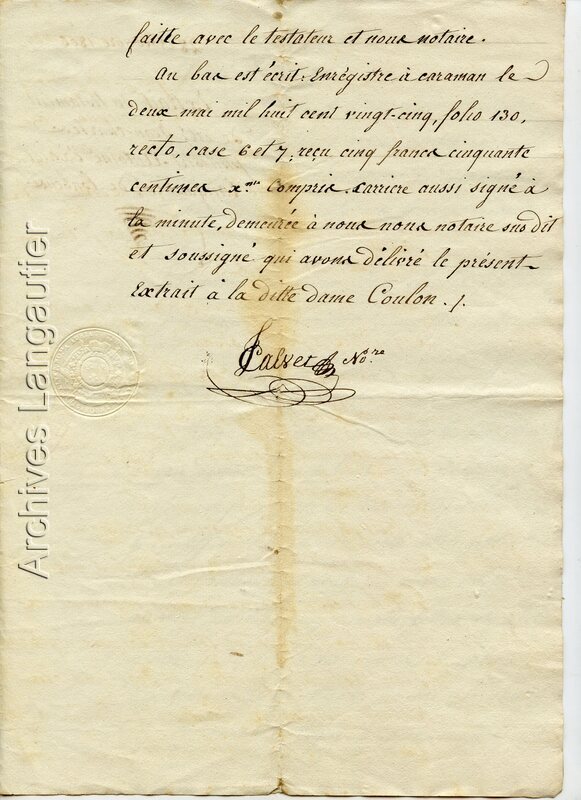 faitte avec le testateur et nous notaire.
Au bas est écrit: Enrégistré à caraman le
deux mai mil huit cent vingt-cinq, folio 130,
recto, case 6 et 7, reçu cinq francs cinquante
centimes x.me compris. carriere aussi signé à
la minute, demeurée à nous nous notaire sus dit
et soussigné qui avons délivré le présent
Extrait à la ditte dame Coulon ./.
Calvet No.re
Archives Langautier